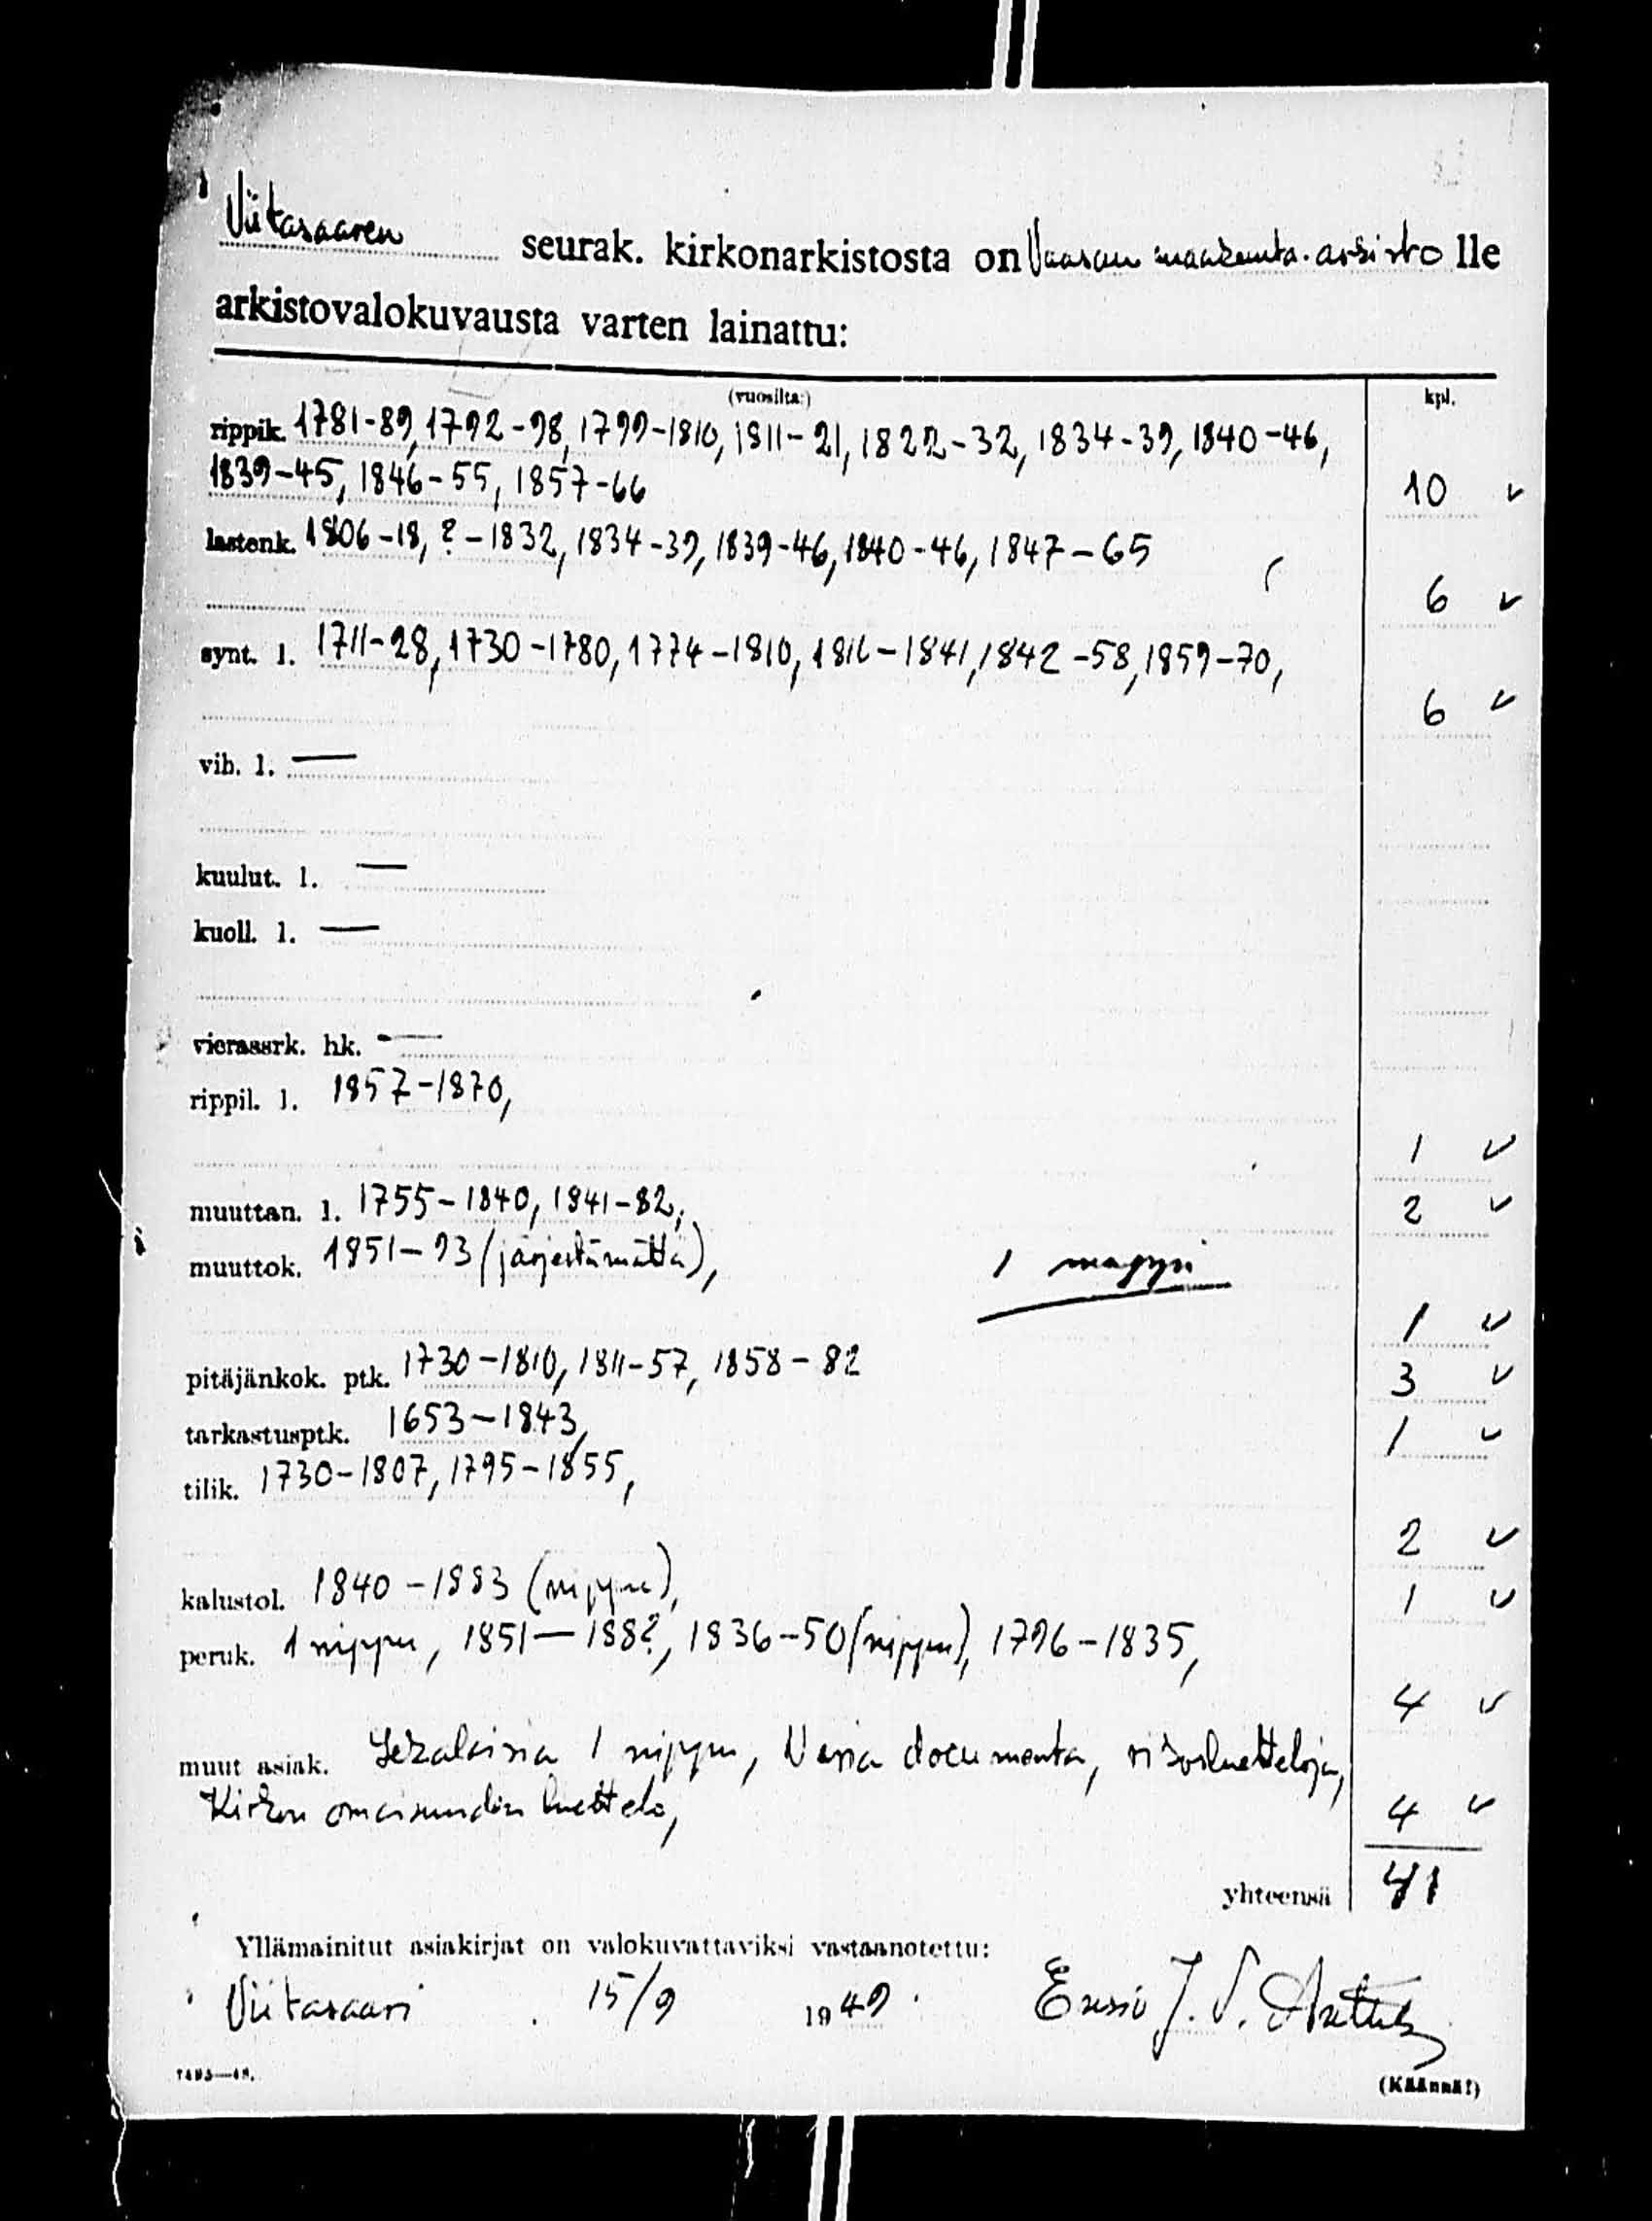 Viitasaaren seurak. kirkonarkistosta on Vaasan maakunta-arkisto lle
arkistovalokuvausta varten lainattu:
(vuosilta:) kpl.
rippik. 1781-89, 1792-98, 1799-1810, 1811-21, 1822-32, 1834-39, 1840-46,
1839-45, 1846-55, 1857-66 10 ✓
lastenk. 1806-18, ?-1832, 1834-39, 1839-46, 1840-46, 1847-65
6 ✓
synt. l. 1711-28, 1730-1780, 1774-1810, 1816-1841, 1842-58, 1859-70,
6 ✓
vih. l. —
kuulut. l. —
kuoll. l. —
vierassrk. hk. —
rippil. l. 1857-1870,
1 ✓
muuttan. l. 1755-1840, 1841-82, 2 ✓
muuttok. 1851-93 (järjestämättä), 1 nippu
1 ✓
pitäjänkok. ptk. 1730-1810, 1811-57, 1858-82 3 ✓
tarkastusptk. 1653-1843, 1 ✓
tilik. 1730-1807, 1795-1855,
2 ✓
kalustol. 1840-1883 (nippu), 1 ✓
peruk. 1 nippu, 1851-188?, 1836-50 (nippu), 1796-1835,
4 ✓
muut asiak. Sekalaisia 1 nippu, Varia documenta,
Kirkon omaisuuden luettelo, 4 ✓
yhteensä 41
Yllämainitut asiakirjat on valokuvattaviksi vastaanotettu:
Viitasaari 15/9 1949. J. V.
7483—48. (Käännä!)